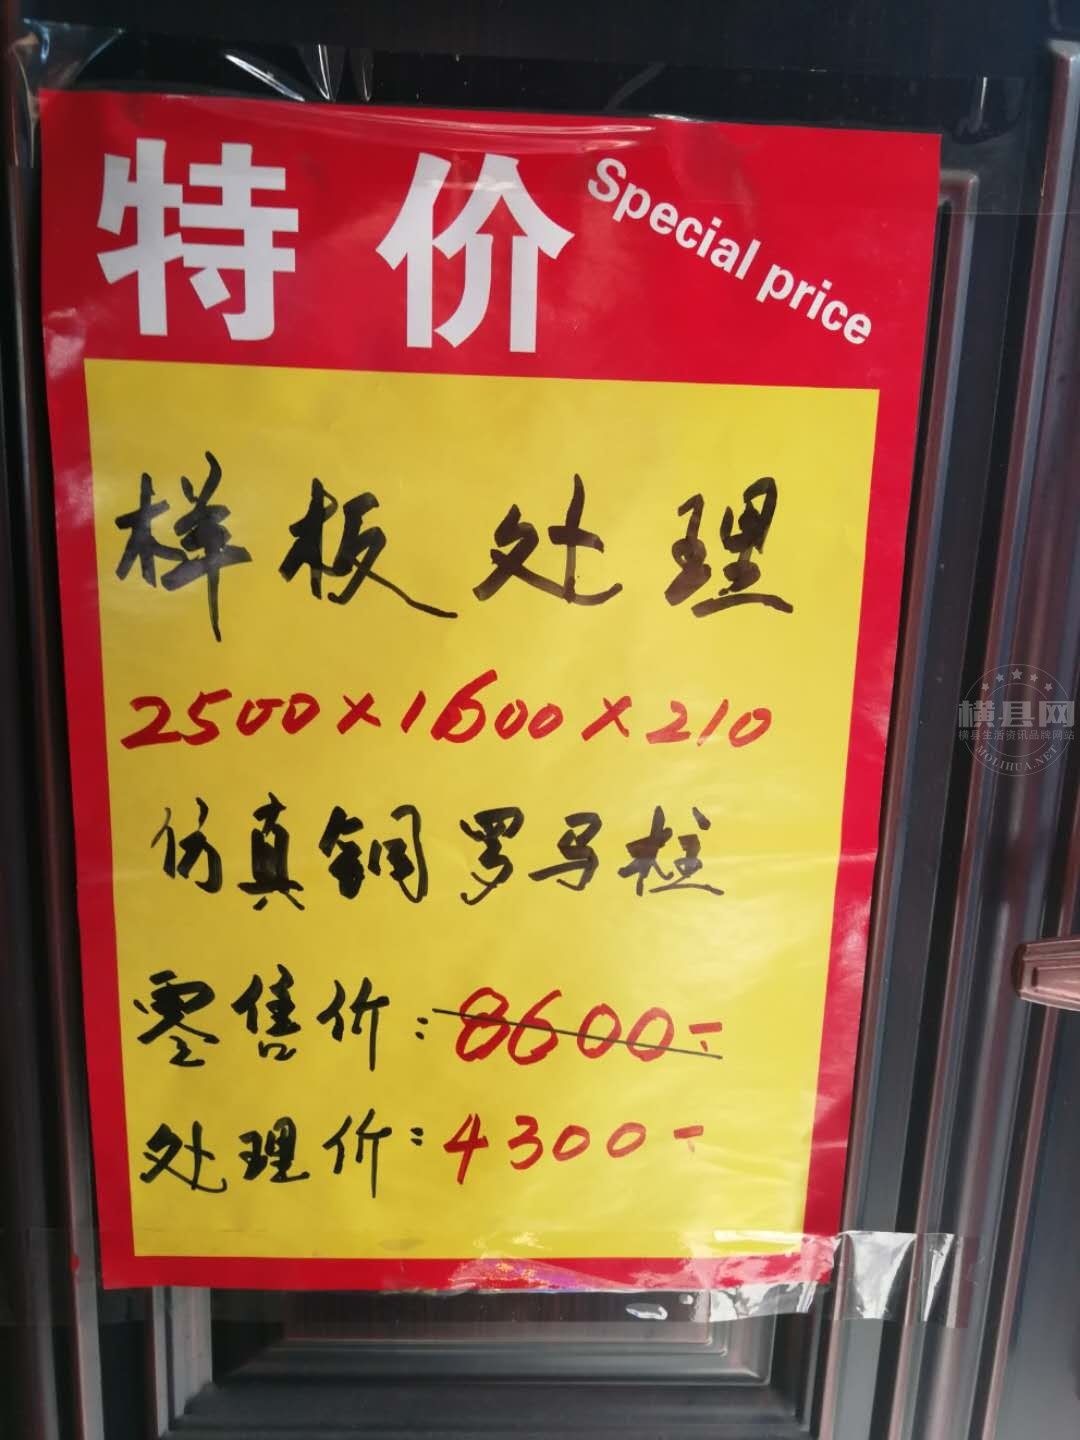 特价
Special price
样板处理
2500×1600×210
仿真铜罗马柱
零售价:8600-
处理价:4300-
横县网
横县生活资讯品牌网站
MOLIHUA.NET